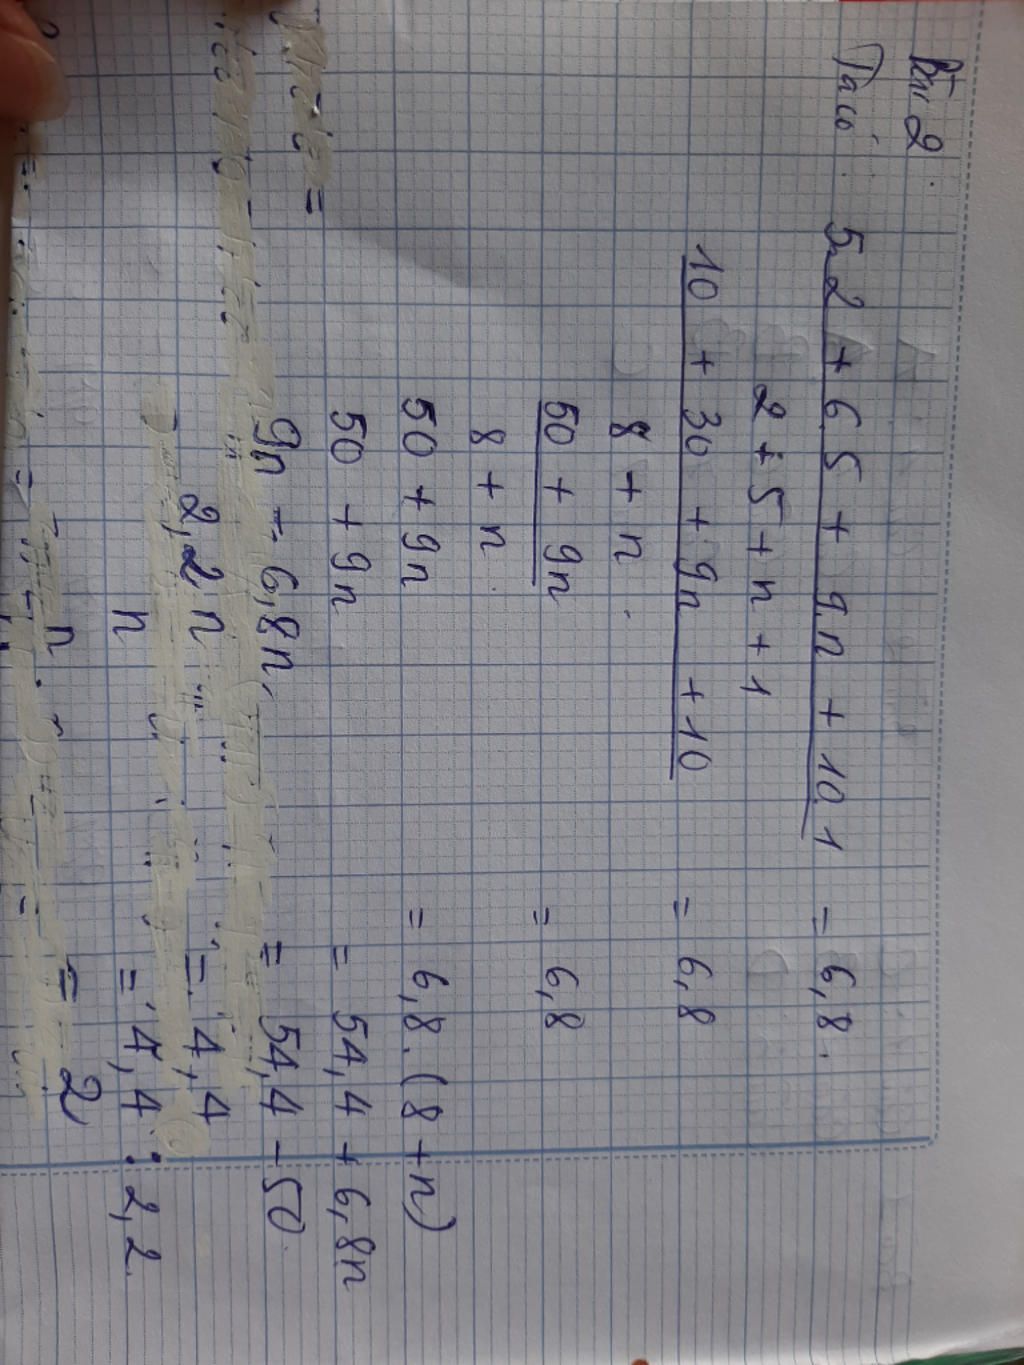 Bài 2
Ta có: 5.2 + 6.5 + 9.n + 10.1 = 6,8.
2 + 5 + n + 1
10 + 30 + 9n + 10 = 6,8
8 + n
50 + 9n = 6,8
8 + n
50 + 9n = 6,8.(8 + n)
50 + 9n = 54,4 + 6,8n
9n - 6,8n = 54,4 - 50
2,2n = 4,4
n = 4,4 : 2,2
n = 2